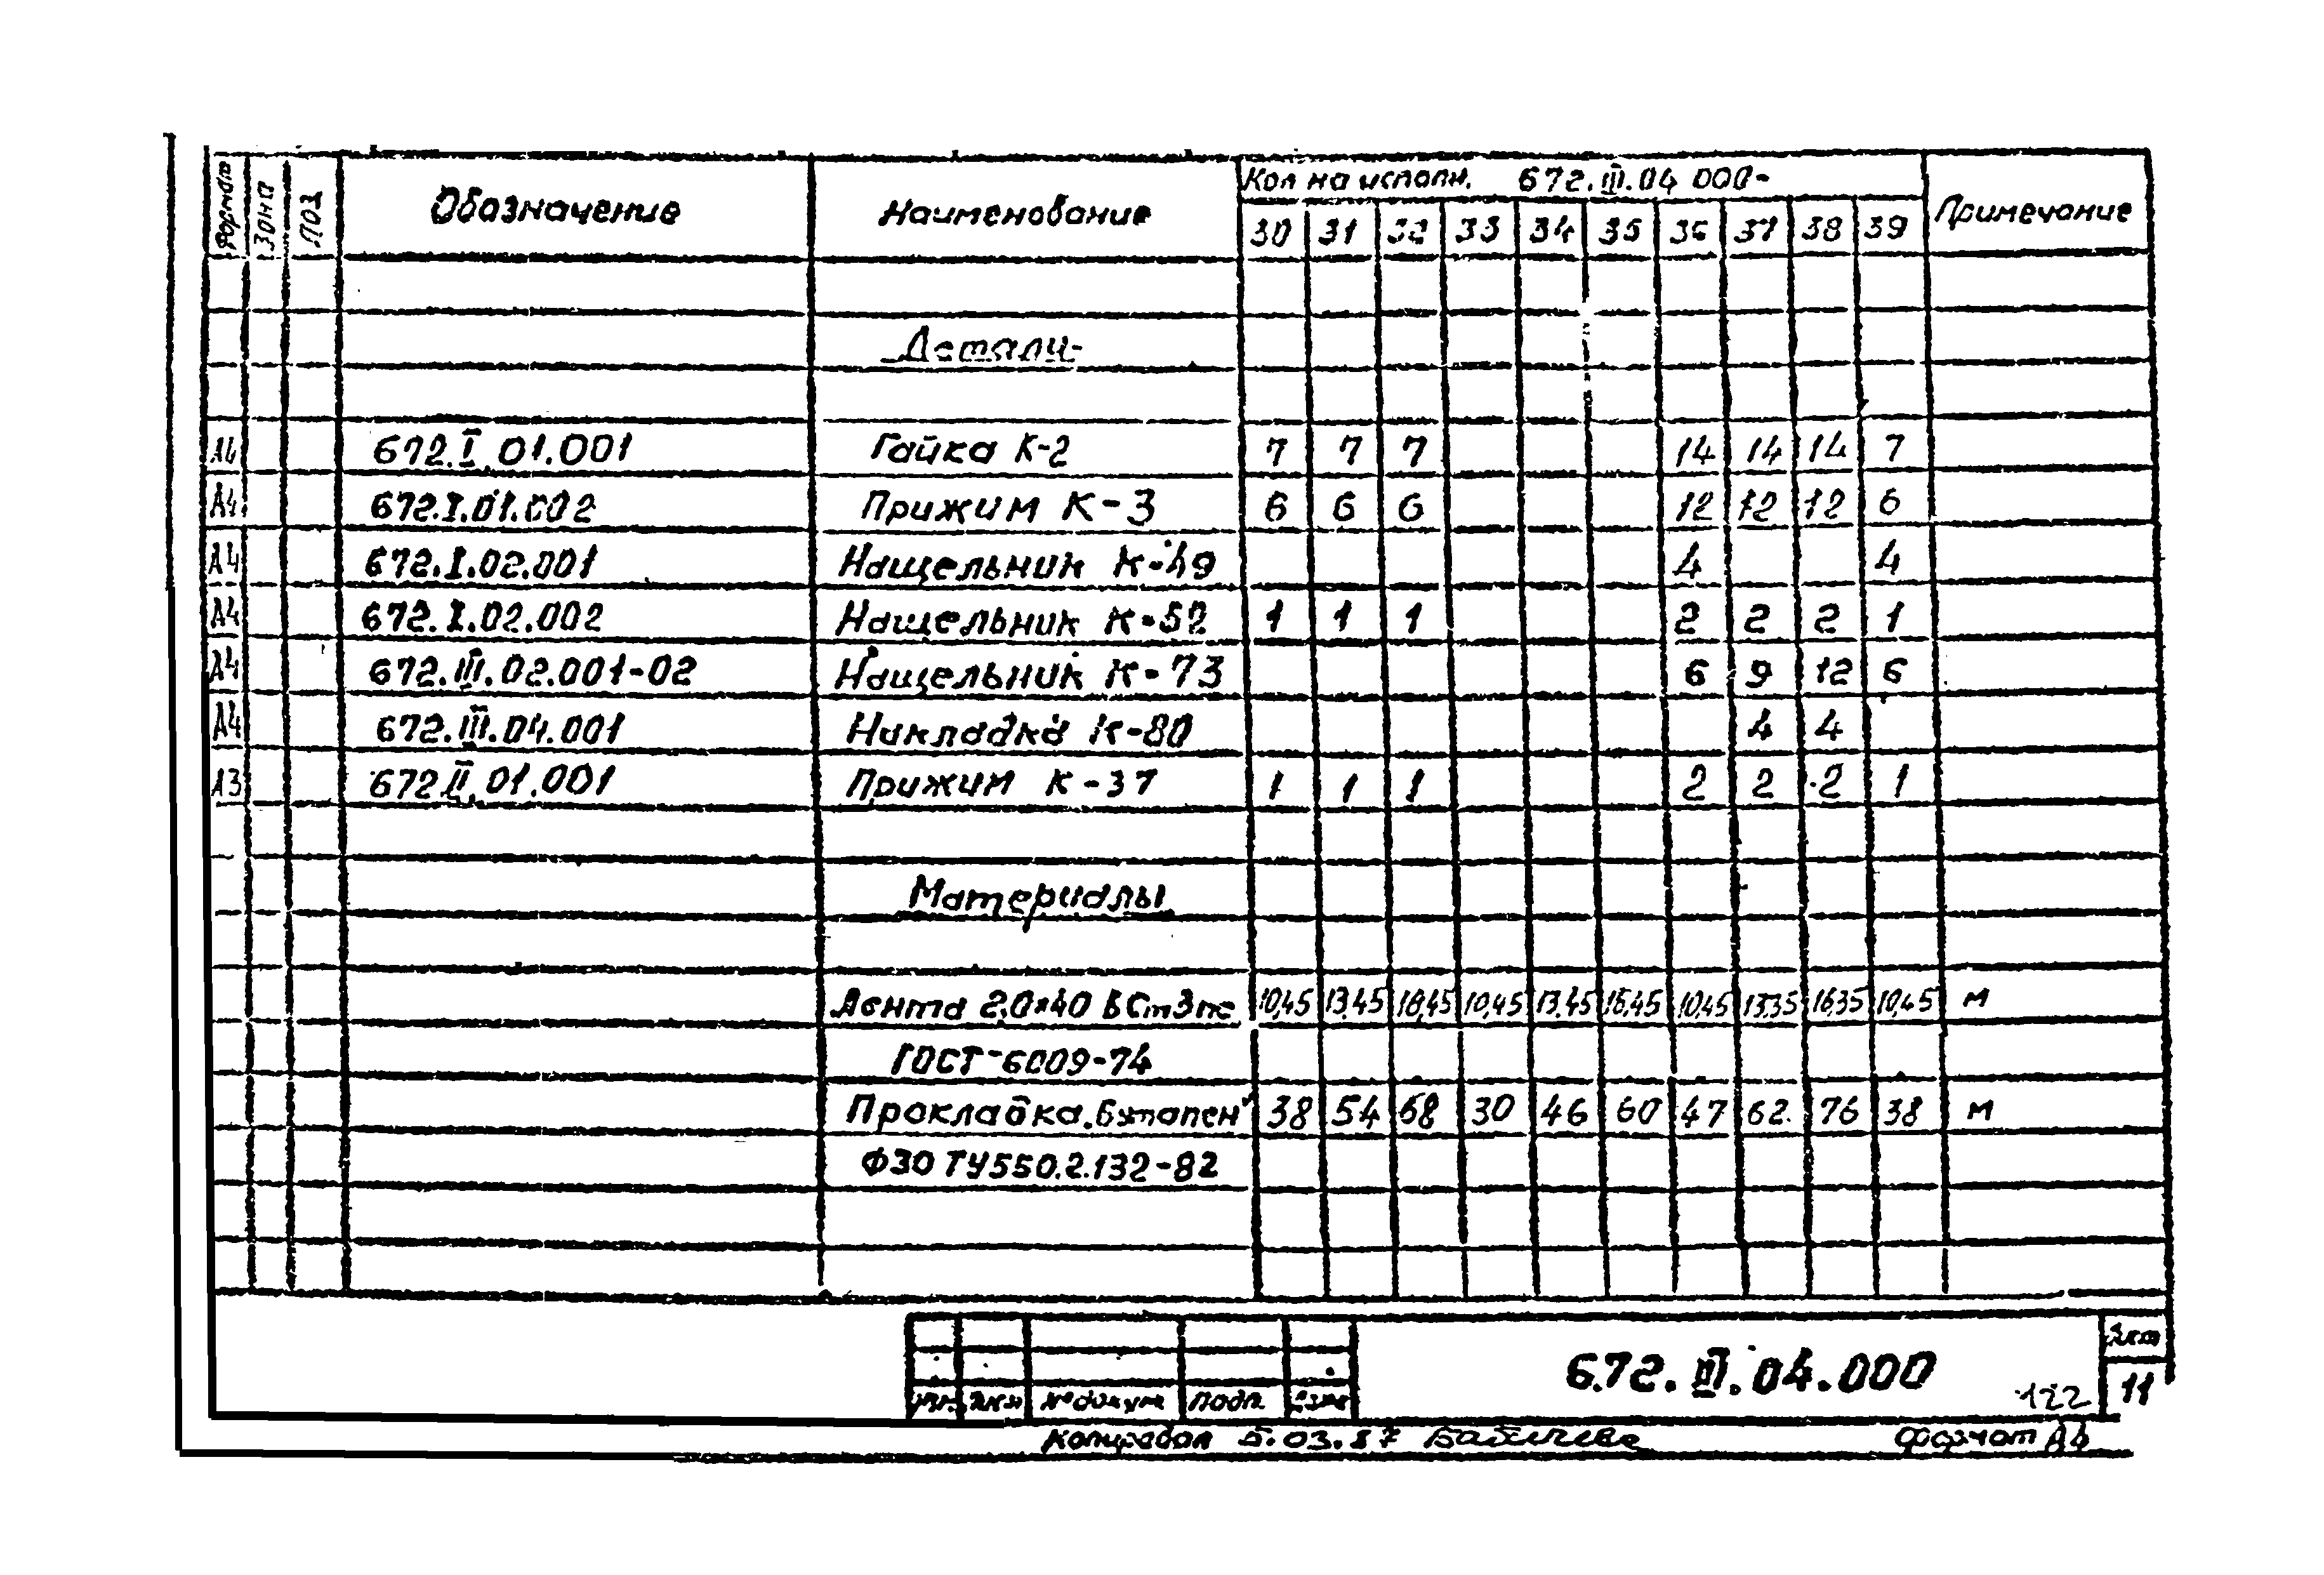 Формат Зона Поз. Обозначение Наименование Кол на исполн. 672.III.04 000- Примечание
30 31 32 33 34 35 36 37 38 39
Детали
А4 672.I.01.001 Гайка К-2 7 7 7 14 14 14 7
А4 672.I.01.002 Прижим К-3 6 6 6 12 12 12 6
А4 672.I.02.001 Нащельник К-49 4 4
А4 672.I.02.002 Нащельник К-52 1 1 1 2 2 2 1
А4 672.III.02.001-02 Нащельник К-73 6 9 12 6
А4 672.III.04.001 Накладка К-80 4 4
А3 672.II.01.001 Прижим К-37 1 1 1 2 2 2 1
Материалы
Лента 2,0×40 ВСт3пс 10,45 13,45 16,45 10,45 13,45 16,45 10,45 13,35 16,35 10,45 м
ГОСТ-6009-74
Прокладка.Бутапен 38 54 68 30 46 60 47 62. 76 38 м
Ф30 ТУ550.2.132-82
672.III.04.000
Лист
11
122
№ докум Подп
Копировал 5.03.87 Формат